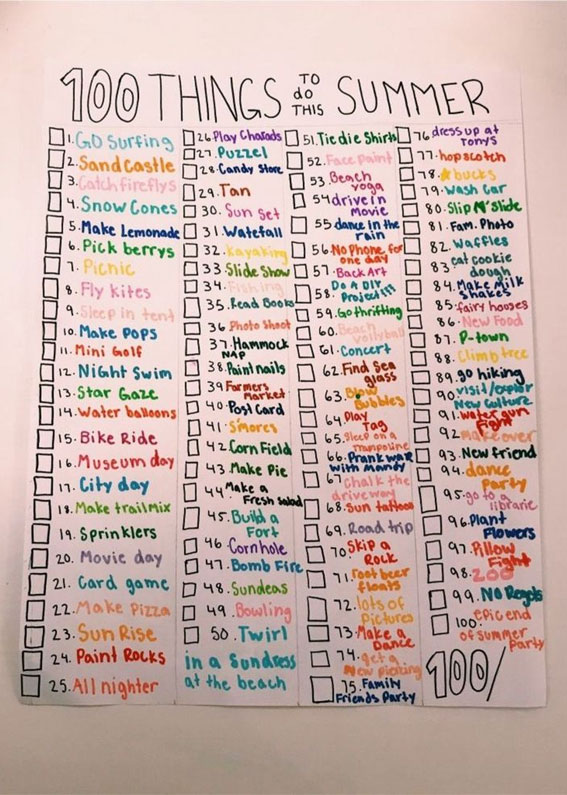 100 THINGS TO do THIS SUMMER
1. GO Surfing
2. Sand Castle
3. Catch fireflys
4. Snow Cones
5. Make Lemonade
6. Pick berrys
7. Picnic
8. Fly kites
9. Sleep in tent
10. Make POPS
11. Mini Golf
12. Night Swim
13. Star Gaze
14. Water balloons
15. Bike Ride
16. Museum day
17. City day
18. Make trail mix
19. Sprinklers
20. Movie day
21. Card game
22. Make Pizza
23. Sun Rise
24. Paint Rocks
25. All nighter
26. Play Charads
27. Puzzel
28. Candy Store
29. Tan
30. Sun Set
31. Watefall
32. Kayaking
33. Slide Show
34. Fishing
35. Read Books
36 Photo Shoot
37. Hammock
NAP
38. Paint nails
39 Farmers
Market
40. Post Card
41. S'mores
42. Corn Field
43. Make Pie
44. Make a
Fresh Salad
45. Build a
Fort
46. Cornhole
47. Bomb Fire
48. Sundeas
49. Bowling
50. Twirl
in a Sundress
at the beach
51. Tie die Shirts
52. Face paint
53. Beach
yoga
54 drive in
Movie
55. dance in the
rain
56. No Phone for
one day
57. Back Art
58. Do A DIY
Project!!!
59. Go thrifting
60. Beach
Vollyball
61. Concert
62. Find Sea
glass
63. Blow
Bubbles
64. Play
Tag
65. Sleep on a
trampoline
66. Prank war
with Mandy
67 Chalk the
drive way
68. Sun tattoos
69. Road trip
70. Skip a
Rock
71. root beer
floats
72. lots of
Pictures
73. Make a
Dance
74. get a
New piercing
75. Family
Friends Party
76 dress up at
Tonys
77. hopscotch
78. bucks
79. Wash Car
80. Slip N' Slide
81. Fam. Photo
82. Waffles
83. eat cookie
dough
84. Make Milk
Shakes
85. fairy houses
86. New Food
87. P-town
88. Climb tree
89. go hiking
90. visit/explor
New Culture
91. water gun
Fight
92. Makeover
93. New friend
94. dance
Party
95. go to a
librarie
96. Plant
Flowers
97. Pillow
Fight
98. ZOO
99. NO Regets
100. epic end
of summer
Party
100/